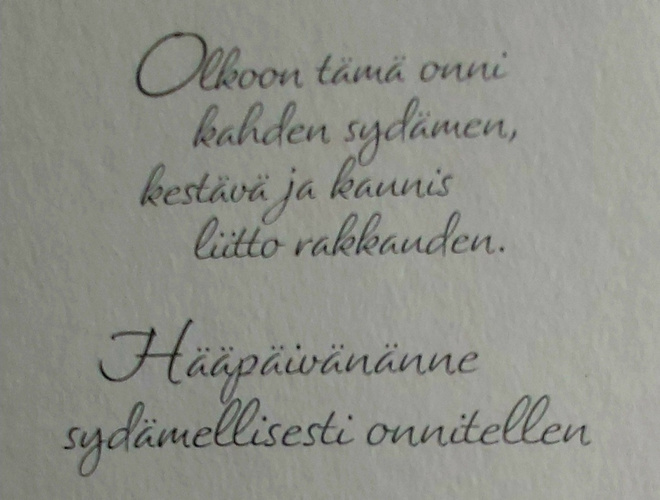 Olkoon tämä onni
kahden sydämen,
kestävä ja kaunis
liitto rakkauden.
Hääpäivänänne
sydämellisesti onnitellen